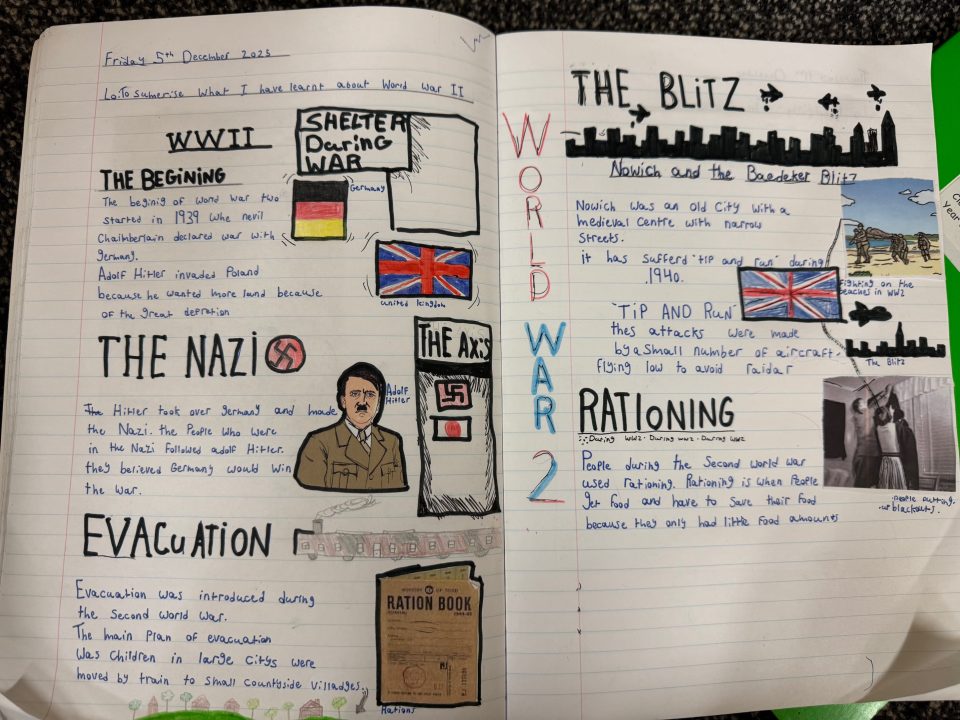 Friday 5th December 2025
Lo: To sumerise what I have learnt about World War II
WWII
SHELTER
During
WAR
THE BEGINING
The beginig of world war two
started in 1939 whe nevil
Chaimberlain declared war with
germany.
Adolf Hitler invaded Poland
because he wanted more land because
of the great depration
Germany
united kingdom
THE NAZI
The Hitler took over germany and made
the Nazi. the People who were
in the Nazi followed adolf Hitler.
they believed Germany would win
the war.
Adolf
Hitler
THE AxiS
EVACuATION
Evacuation was introduced during
the Second World War.
The main Plan of evacuation
was Children in large Citys were
moved by train to small countyside villadges.
MINISTRY OF FOOD
RATION BOOK
Rations
WORLD
WAR
2
THE BLiTZ
Nowich and the Baedeker Blitz
Nowich was an old City with a
medieval centre with narrow
Streets.
it has sufferd 'tip and run' during
1940.
'TiP AND RuN'
thes attacks were made
by a small number of aircraft
flying low to avoid raidar
Fighting on the
beaches in WW2
The Blitz
RATIONING
During WW2 · During ww2 · During WW2
People during the Second world war
used rationing. Rationing is when People
get food and have to save their food
because they only had little food amounts
People putting
up blackouts.